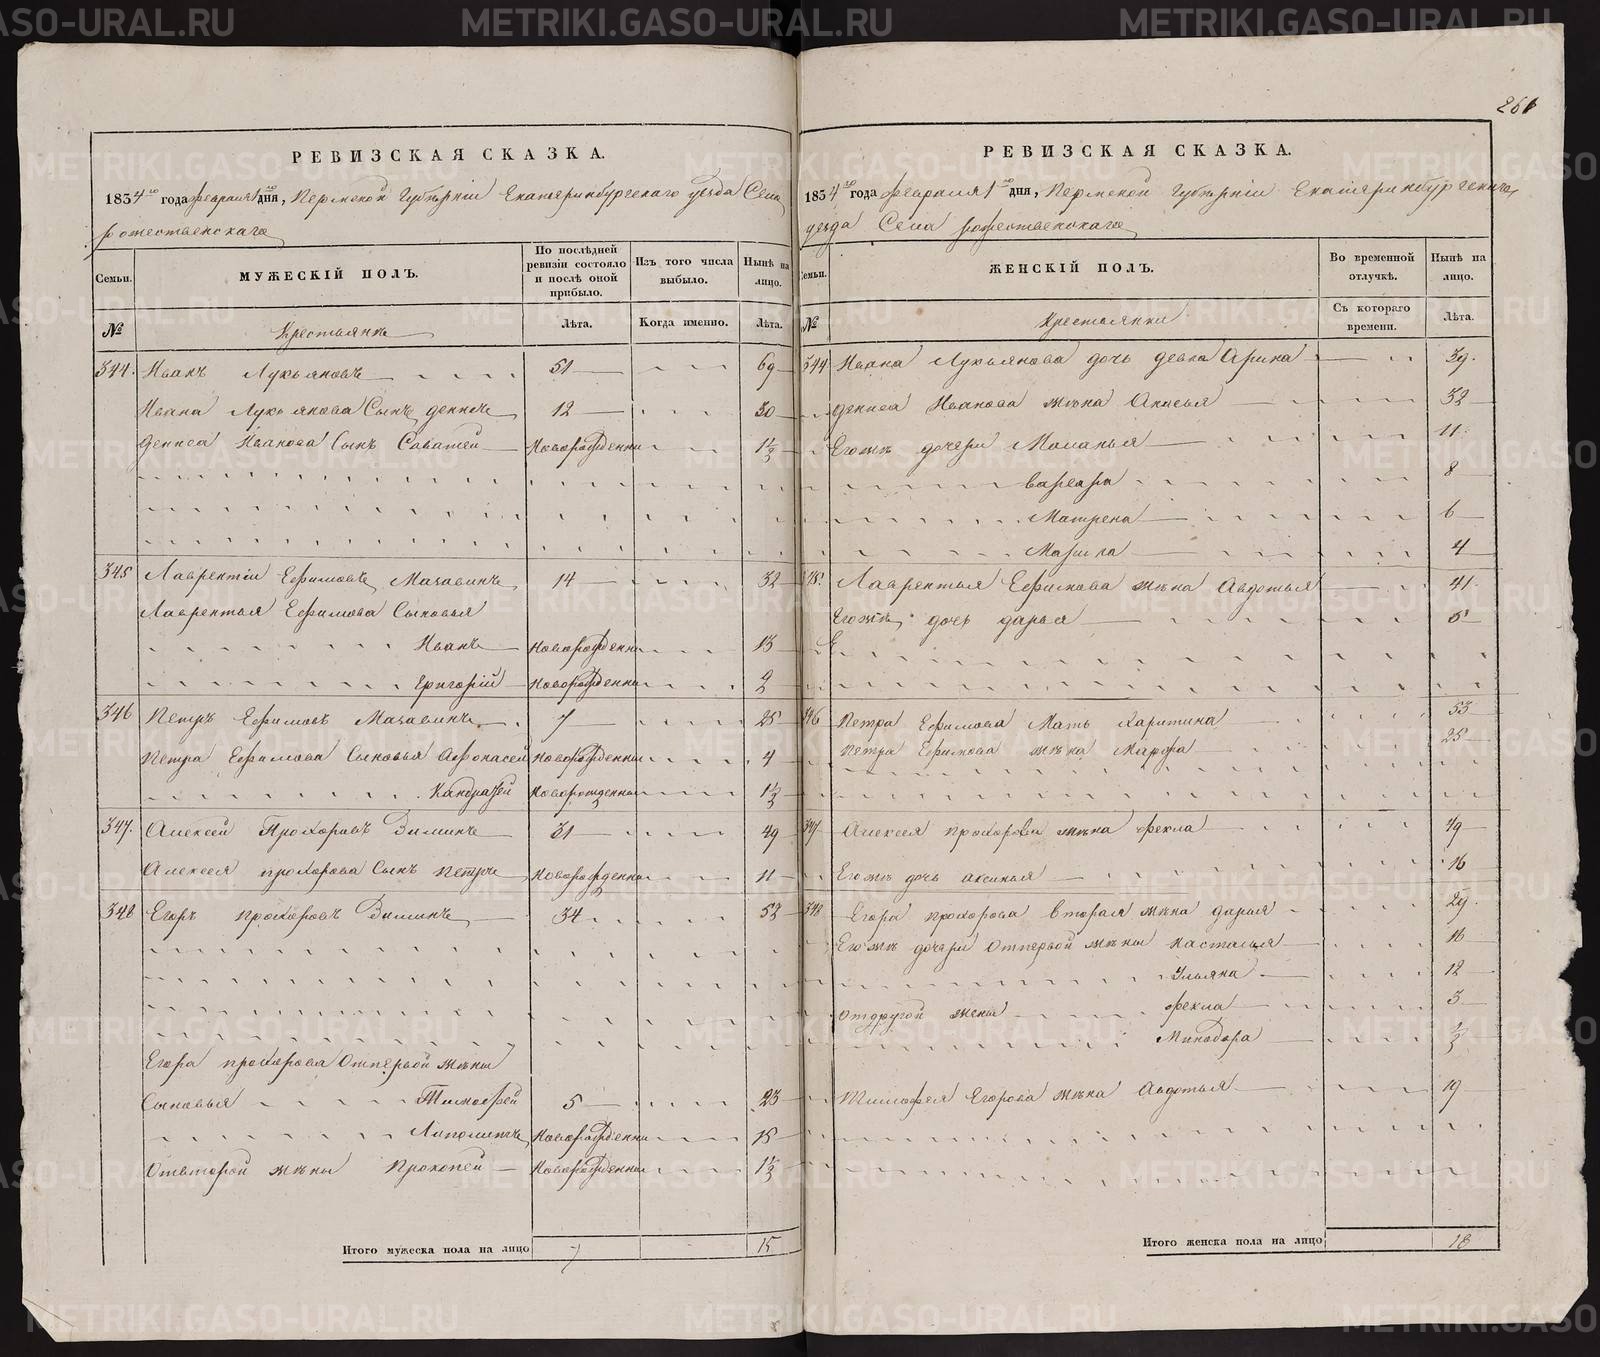 261
РЕВИЗСКАЯ СКАЗКА.
1834го года февраля 1го дня, Пермской Губерніи Екатеринбургскаго уезда Села
рожественскаго
Семьи.
МУЖЕСКІЙ ПОЛЪ.
По послѣдней ревизіи состояло и послѣ оной прибыло.
Изъ того числа выбыло.
Нынѣ на лицо.
№
Крестьянѣ
Лѣта.
Когда именно.
Лѣта.
344. Иванъ Лукьяновъ 51 69
Ивана Лукьянова Сынъ денисъ 12 30
дениса Иванова Сынъ Саватей Новорожденны 1½
345 Лаврентіи Ефимовъ 14 32
Лаврентья Ефимова Сыновья
Иванъ Новорожденны 13
Григорій Новорожденны 2
346 Петръ Ефимовъ 7 25
Петра Ефимова Сыновья Афонасей Новорожденны 4
Кандратей Новорожденны 1½
347. Алексей Прохоровъ Зиминъ 31 49
Алексея прохорова Сынъ петръ Новорожденны 11
348 Егоръ прохоровъ Зиминъ 34 52
Егора прохорова Отпервой жены
Сыновья Тимофей 5 23
Новорожденны 15
Отвторой жены Прокопей Новорожденны 1½
Итого мужеска пола на лицо 15
РЕВИЗСКАЯ СКАЗКА.
1834го года февраля 1го дня, Пермской губерніи Екатеринбургскаго
уезда Села рожественскаго
Семьи.
ЖЕНСКІЙ ПОЛЪ.
Во временной отлучкѣ.
Нынѣ на лицо.
№
Крестьянки
Съ котораго времени.
Лѣта.
344 Ивана Лукьянова дочь девка Арина 39.
дениса Иванова жена Анисья 32
Егожъ дочери Маланья 11
варвара 8
Матрена 6
4
345. Лаврентья Ефимова жена Авдотья 41.
Егожъ дочь дарья 5
346 Петра Ефимова Мать Харитина 53
Петра Ефимова жена Марфа 25
347 Алексея прохорова жена фекла 49
Егожъ дочь аксинья 16
348 Егора прохорова вторая жена дарья 29.
Егожъ дочери Отпервой жены настасья 16
Ульяна 12
отдругой жены фекла 3
Минодора ½
Тимофея Егорова жена Авдотья 19
Итого женска пола на лицо 18
METRIKI.GASO-URAL.RU